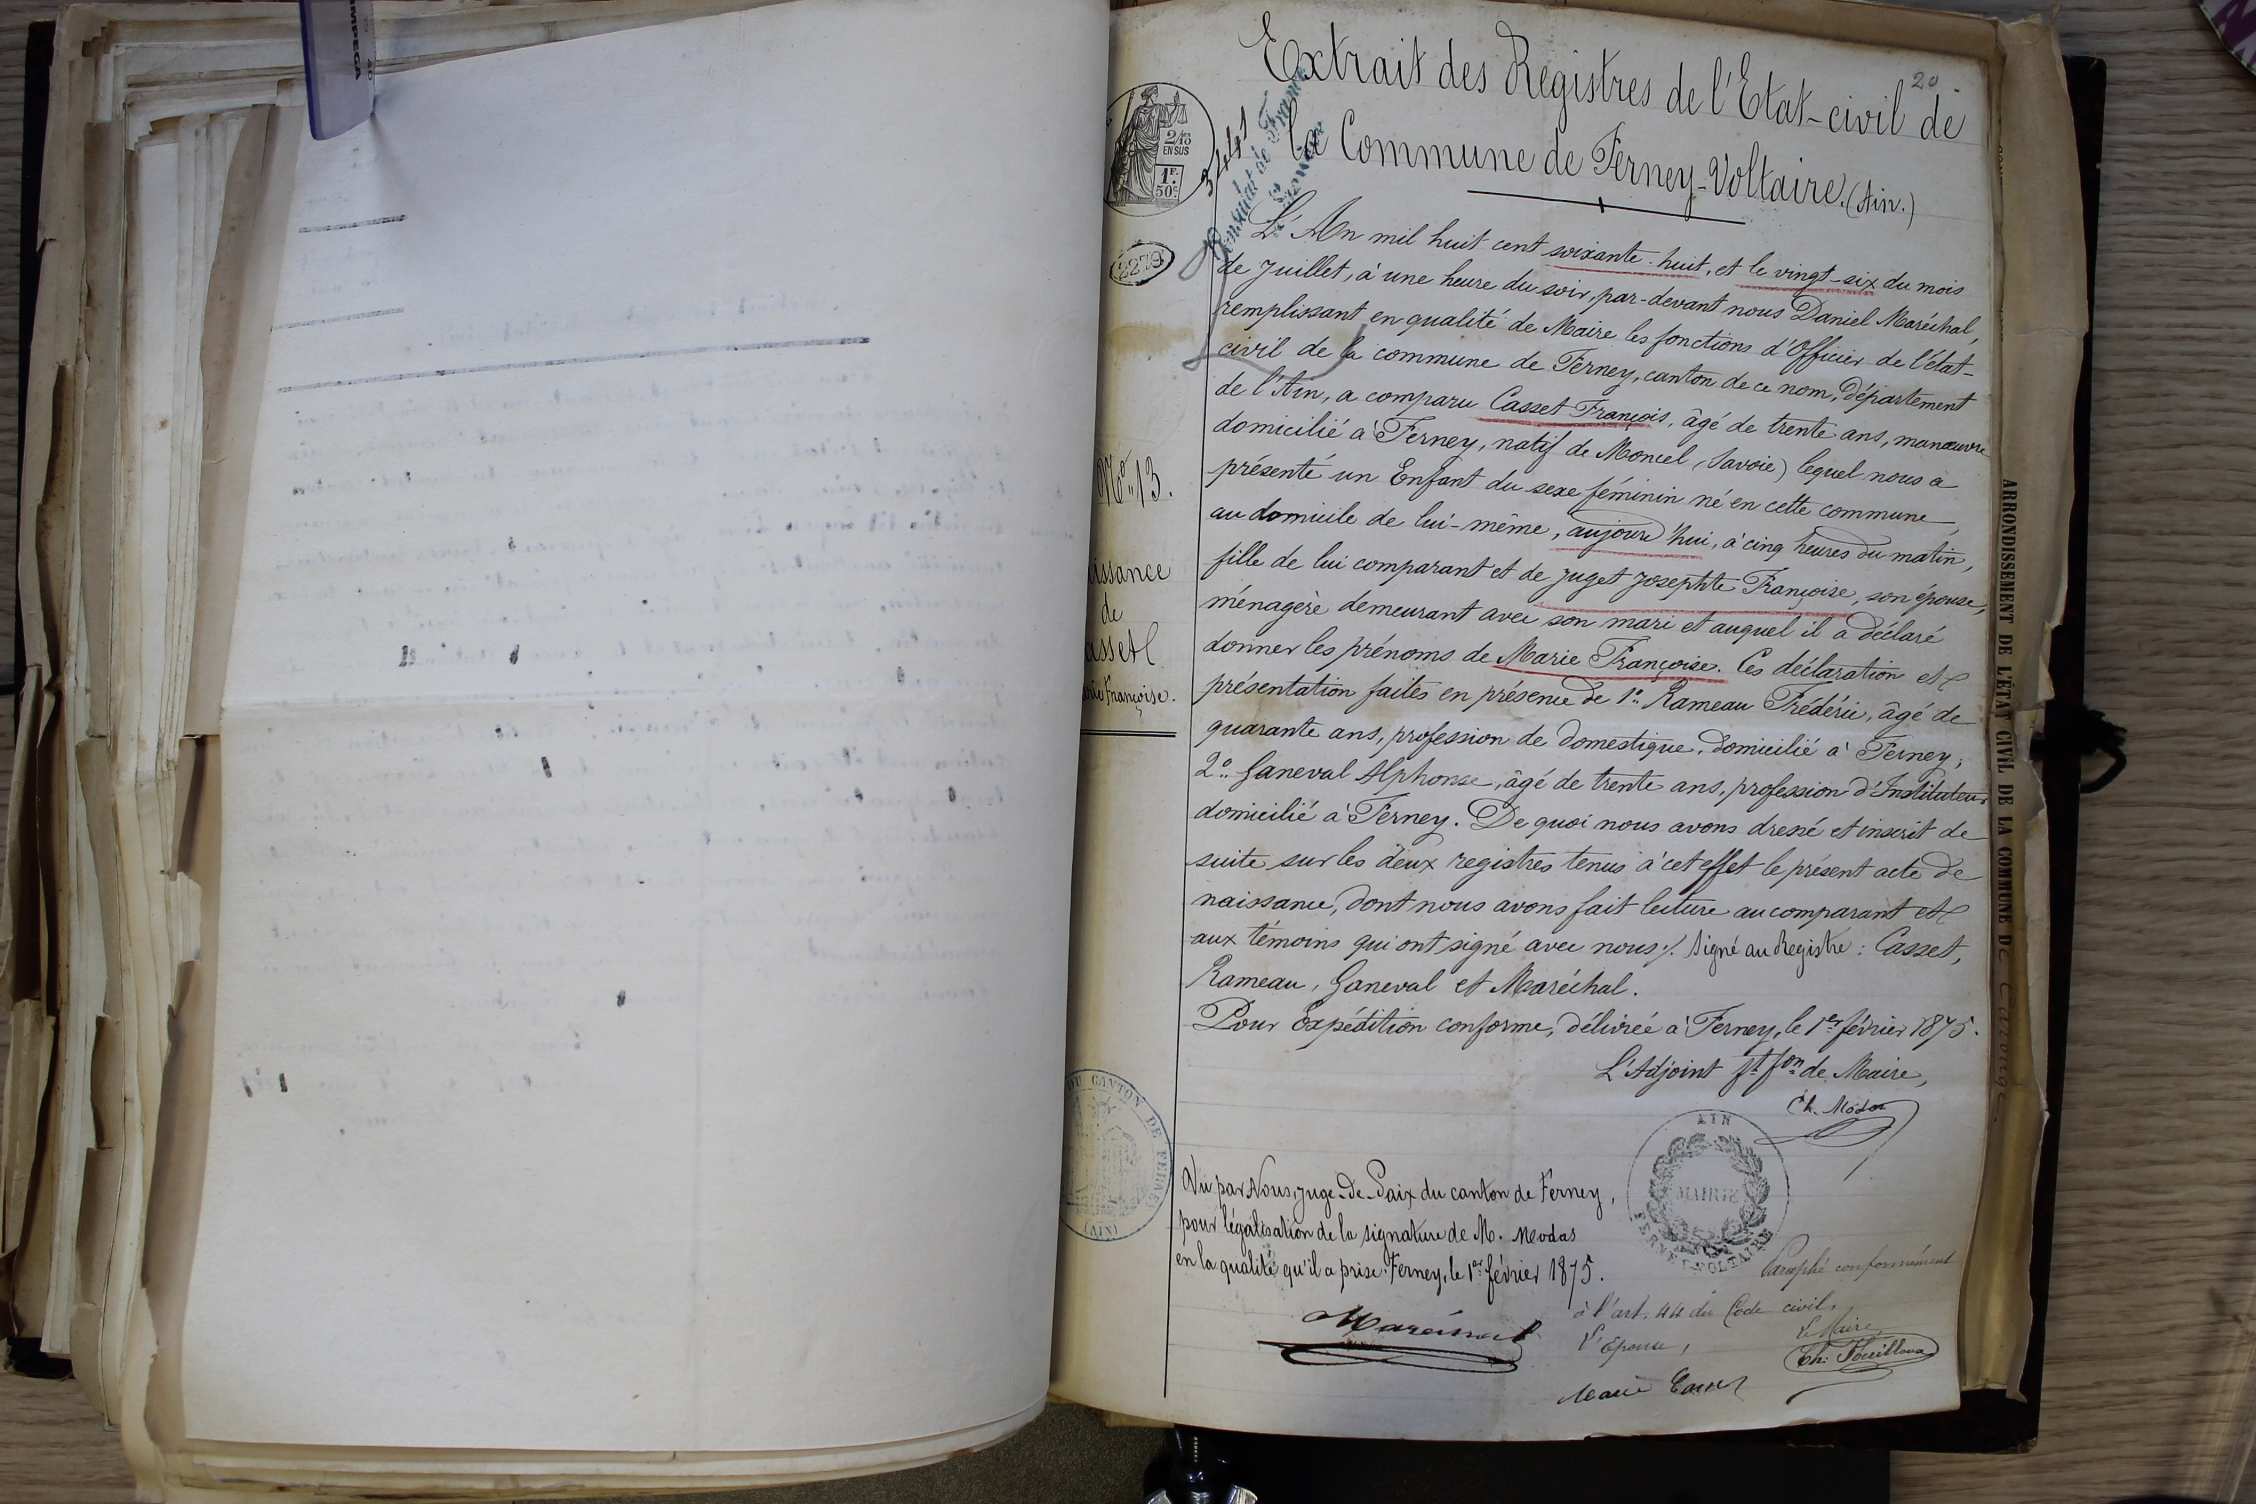 20
Extrait des Registres de l'Etat-civil de
la Commune de Ferney-Voltaire (Ain.)
2/10
EN SUS
1F.
50c.
Consulat de France
2279
L'An mil huit cent soixante-huit, et le vingt-six du mois
de Juillet, à une heure du soir, par-devant nous Daniel Maréchal,
remplissant en qualité de Maire les fonctions d'Officier de l'état-
civil de la commune de Ferney, canton de ce nom, Département
de l'Ain, a comparu Casset François, âgé de trente ans, manœuvre
domicilié à Ferney, natif de (Savoie) lequel nous a
présenté un Enfant du sexe féminin né en cette commune
au domicile de lui-même, aujourd'hui, à cinq heures du matin,
fille de lui comparant et de Juget Josephte Françoise, son épouse,
ménagère demeurant avec son mari et auquel il a déclaré
donner les prénoms de Marie Françoise. Ces déclaration et
présentation faites en présence de 1° Rameau Frédéric, âgé de
quarante ans, profession de domestique, domicilié à Ferney;
2° Ganeval Alphonse, âgé de trente ans, profession d'Instituteur
domicilié à Ferney. De quoi nous avons dressé et inscrit de
suite sur les deux registres tenus à cet effet le présent acte de
naissance, dont nous avons fait lecture au comparant et
aux témoins qui ont signé avec nous ./. Signé au Registre : Casset,
Rameau, Ganeval et Maréchal.
Pour Expédition conforme, délivrée à Ferney, le 1er février 1875.
L'Adjoint ft fon de Maire,
N° 13.
issance
de
asset
arie Françoise.
DU CANTON DE FERNEY
(AIN)
AIN
MAIRIE
FERNEY-VOLTAIRE
Vu par Nous, Juge de Paix du canton de Ferney,
pour légalisation de la signature de M. Modas
en la qualité qu'il a prise. Ferney, le 1er février 1875.
Paraphé conformément
à l'art. 44 du Code civil.
L'Epouse,
Le Maire,
Marie Casset
ARRONDISSEMENT DE L'ÉTAT CIVIL DE LA COMMUNE DE Carouge